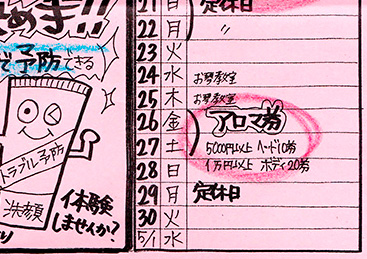 め手!!
で予防できる
トラブル予防
洗顔
体験
しませんか?
21 日 定休日
22 月 〃
23 火
24 水 お琴教室
25 木 お琴教室
26 金 アロマ券
27 土 5000円以上 ヘッド10券
28 日 1万円以上 ボディ20券
29 月 定休日
30 火
5/1 水